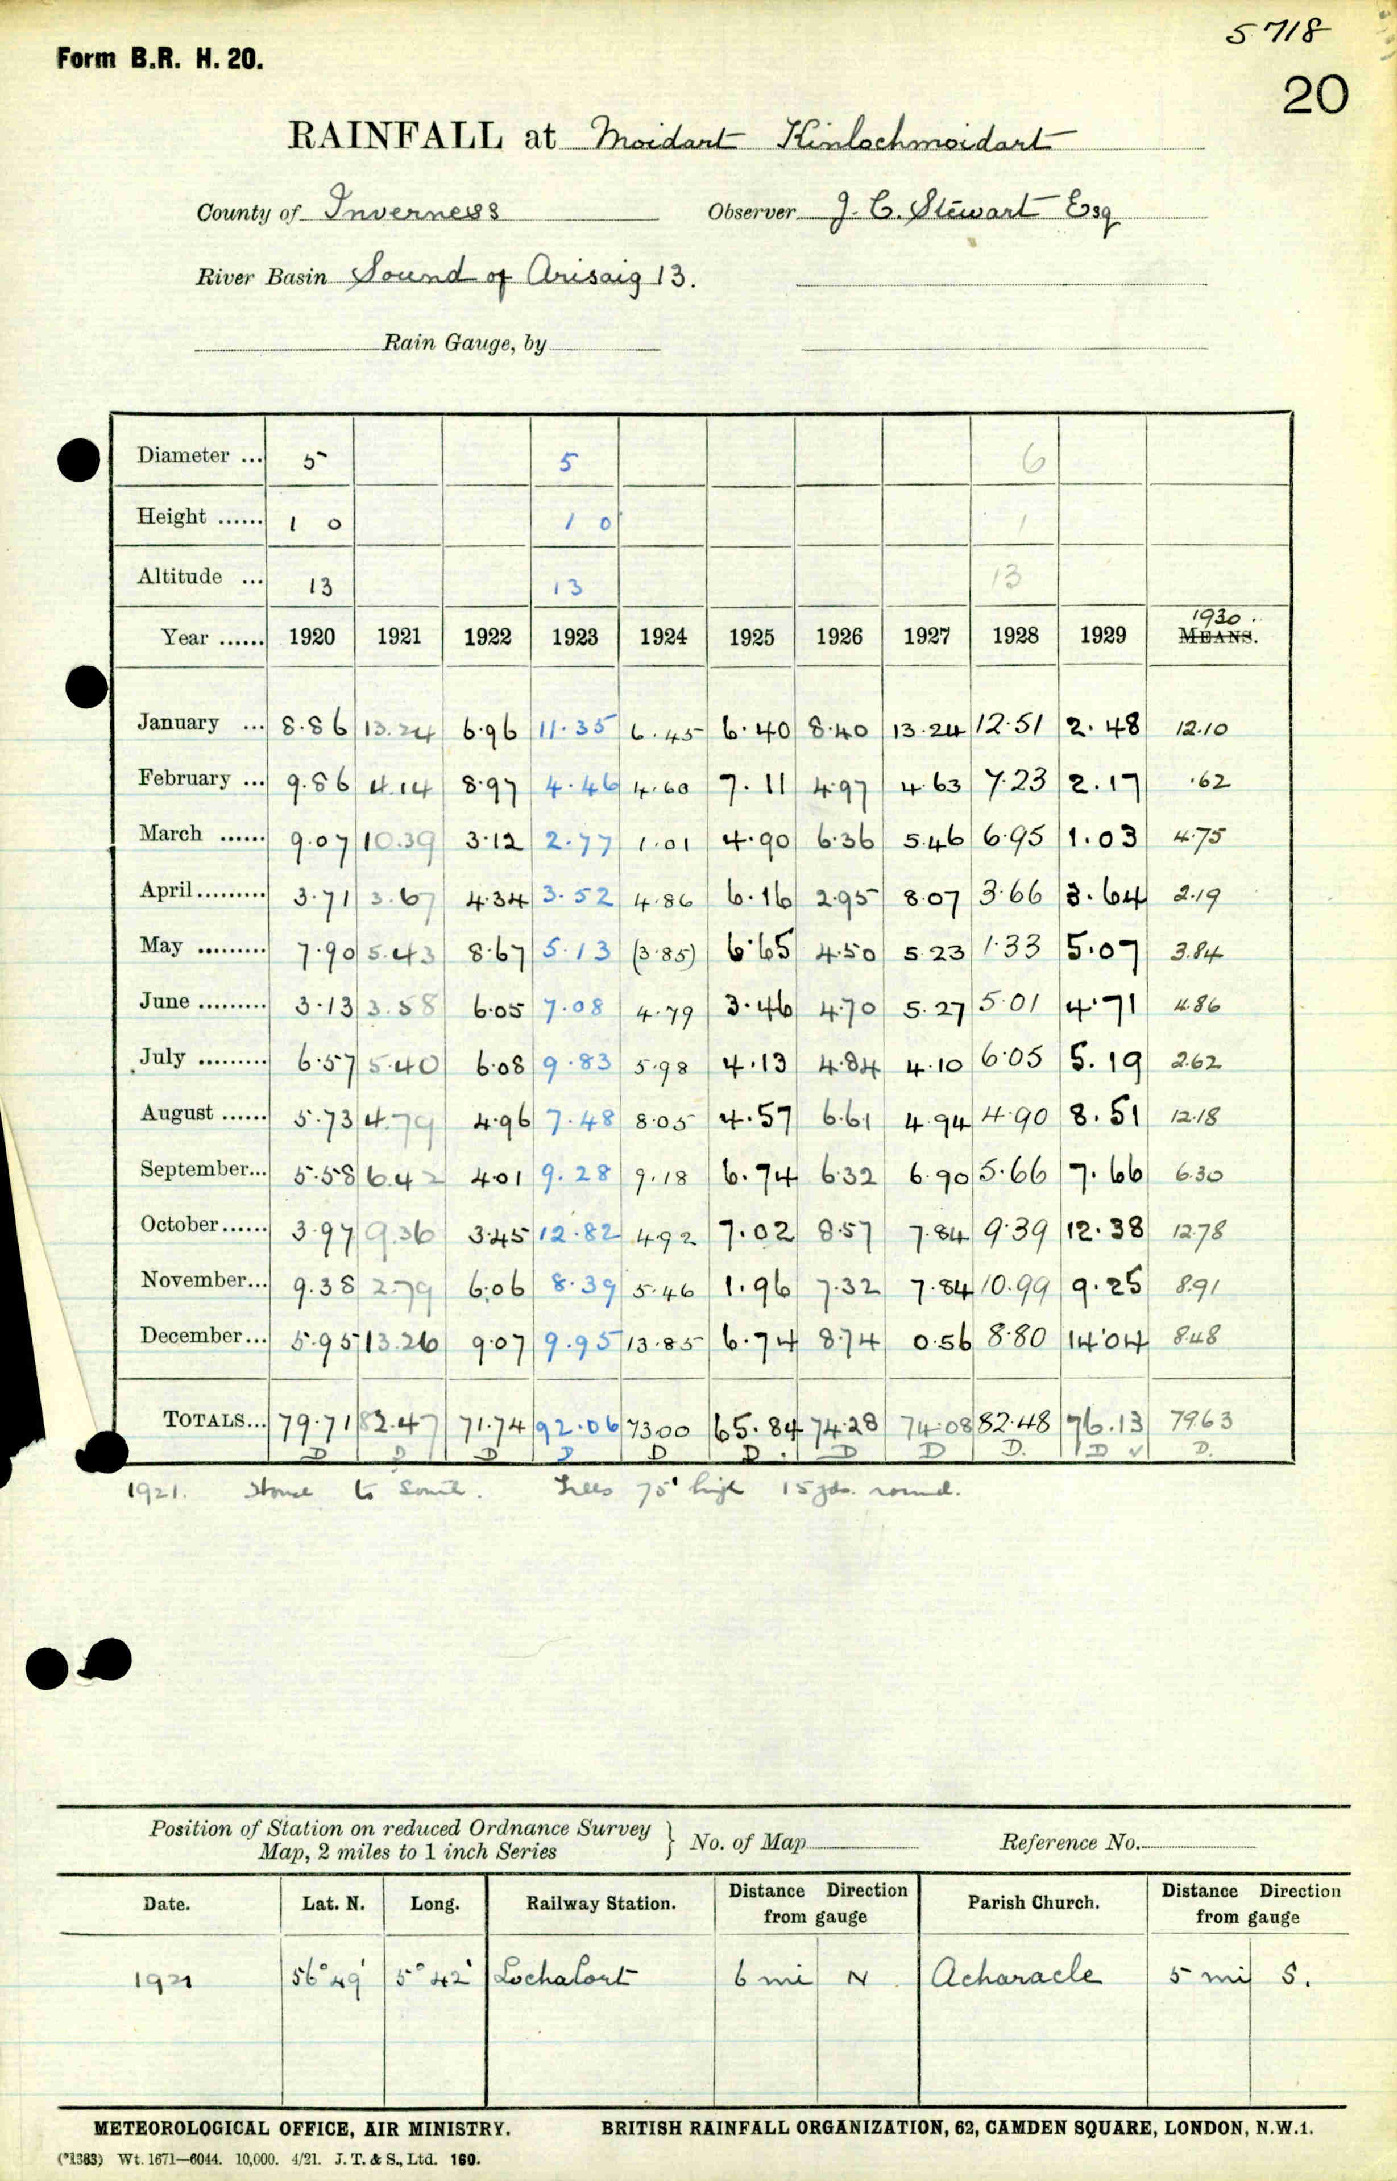 5718
Form B.R. H. 20.
20
RAINFALL at Moidart Kinlochmoidart
County of Inverness Observer J. C. Stewart Esq
River Basin Sound of Arisaig 13.
Rain Gauge, by
Diameter ... 5 5 6
Height ...... 1 0 1 0 1
Altitude ... 13 13 13
1930
Year ...... 1920 1921 1922 1923 1924 1925 1926 1927 1928 1929 MEANS.
January ... 8.86 13.24 6.96 11.35 6.45 6.40 8.40 13.24 12.51 2.48 12.10
February ... 9.86 4.14 8.97 4.46 4.60 7.11 4.97 4.63 7.23 2.17 .62
March ...... 9.07 10.39 3.12 2.77 1.01 4.90 6.36 5.46 6.95 1.03 4.75
April......... 3.71 3.67 4.34 3.52 4.86 6.16 2.95 8.07 3.66 3.64 2.19
May ......... 7.90 5.43 8.67 5.13 (3.85) 6.65 4.50 5.23 1.33 5.07 3.84
June ......... 3.13 3.58 6.05 7.08 4.79 3.46 4.70 5.27 5.01 4.71 4.86
July ......... 6.57 5.40 6.08 9.83 5.98 4.13 4.84 4.10 6.05 5.19 2.62
August ...... 5.73 4.79 4.96 7.48 8.05 4.57 6.61 4.94 4.90 8.51 12.18
September... 5.58 6.42 4.01 9.28 9.18 6.74 6.32 6.90 5.66 7.66 6.30
October...... 3.97 9.36 3.45 12.82 4.92 7.02 8.57 7.84 9.39 12.38 12.78
November... 9.38 2.79 6.06 8.39 5.46 1.96 7.32 7.84 10.99 9.25 8.91
December... 5.95 13.26 9.07 9.95 13.85 6.74 8.74 0.56 8.80 14.04 8.48
TOTALS... 79.71 82.47 71.74 92.06 73.00 65.84 74.28 74.08 82.48 76.13 79.63
D D D D D D. D D D. D ✓ D.
1921. House to South. Trees 75' high 15 yds. round.
Position of Station on reduced Ordnance Survey
Map, 2 miles to 1 inch Series } No. of Map Reference No.
Date. Lat. N. Long. Railway Station. Distance Direction from gauge Parish Church. Distance Direction from gauge
1921 56°49' 5°42' Lochailort 6 mi N. Acharacle 5 mi S.
METEOROLOGICAL OFFICE, AIR MINISTRY. BRITISH RAINFALL ORGANIZATION, 62, CAMDEN SQUARE, LONDON, N.W.1.
(*1383) Wt. 1671—6044. 10,000. 4/21. J. T. & S., Ltd. 160.